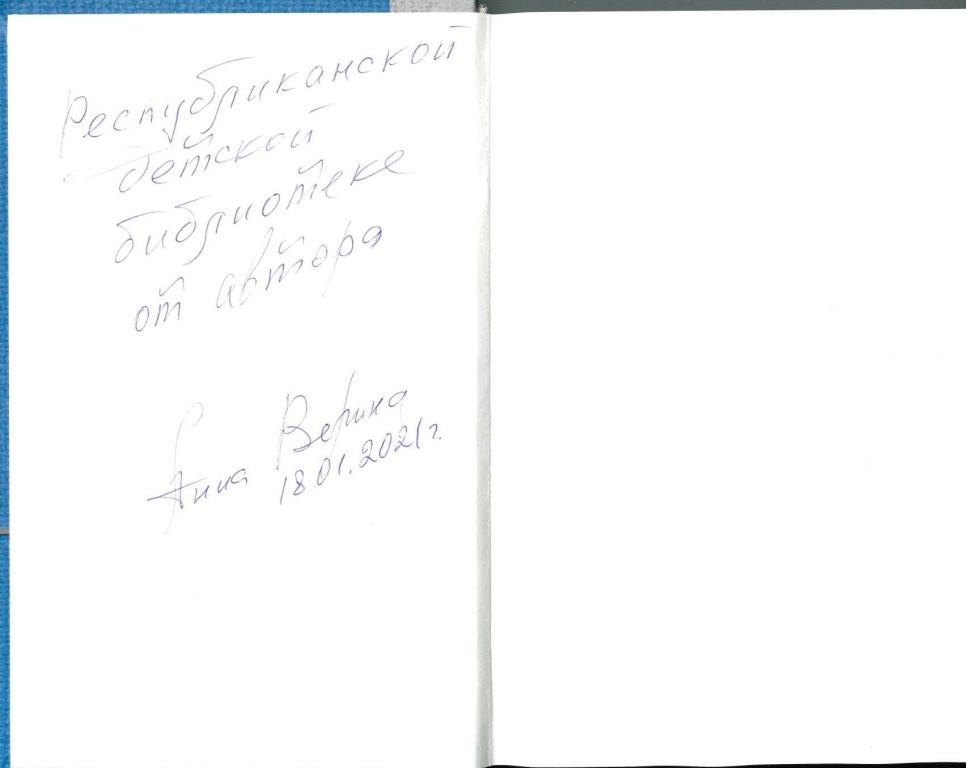 Республиканской
детской
библиотеке
от автора
Анна Верина
18.01.2021г.